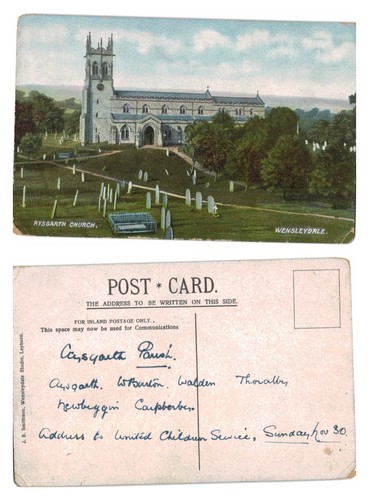 AYSGARTH CHURCH,
WENSLEYDALE.
POST * CARD.
THE ADDRESS TO BE WRITTEN ON THIS SIDE.
FOR INLAND POSTAGE ONLY,
This space may now be used for Communications
Aysgarth Parish.
Aysgarth. W Burton. Walden Thoralby
Newbiggin Carperby
Address to United Children Service, Sunday Nov 30
J. R. Smithson, Wensleydale Studio, Leyburn.